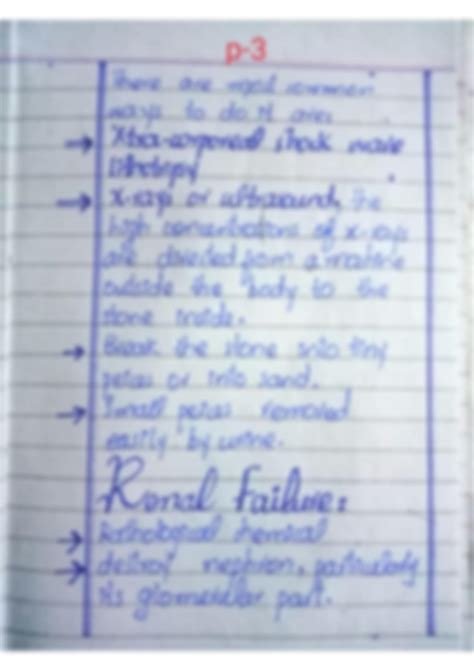 p-3
There are most common
ways to do it are:
→ Xtra-corporeal shock wave
lithotripsy
→ X-rays or ultrasound, the
high concentrations of x-rays
are directed from a machine
outside the body to the
stone inside.
→ Break the stone into tiny
peices or into sand.
→ Small peices removed
easily by urine.
Renal failure:
→ Pathological chemical
→ destroy nephron, particularly
its glomerular part.